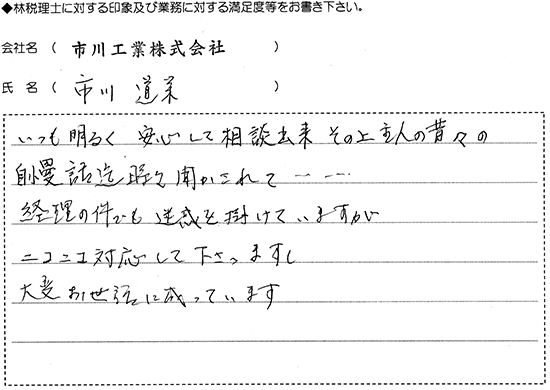 ◆林税理士に対する印象及び業務に対する満足度等をお書き下さい。
会社名 ( 市川工業株式会社 )
氏名 ( 市川 道栄 )
いつも明るく 安心して相談出来 その上主人の昔々の
自慢話迄 時々聞かされて ー ー ー
経理の件でも 迷惑を掛けていますが
ニコニコ対応して下さつますし
大変お世話に成っています